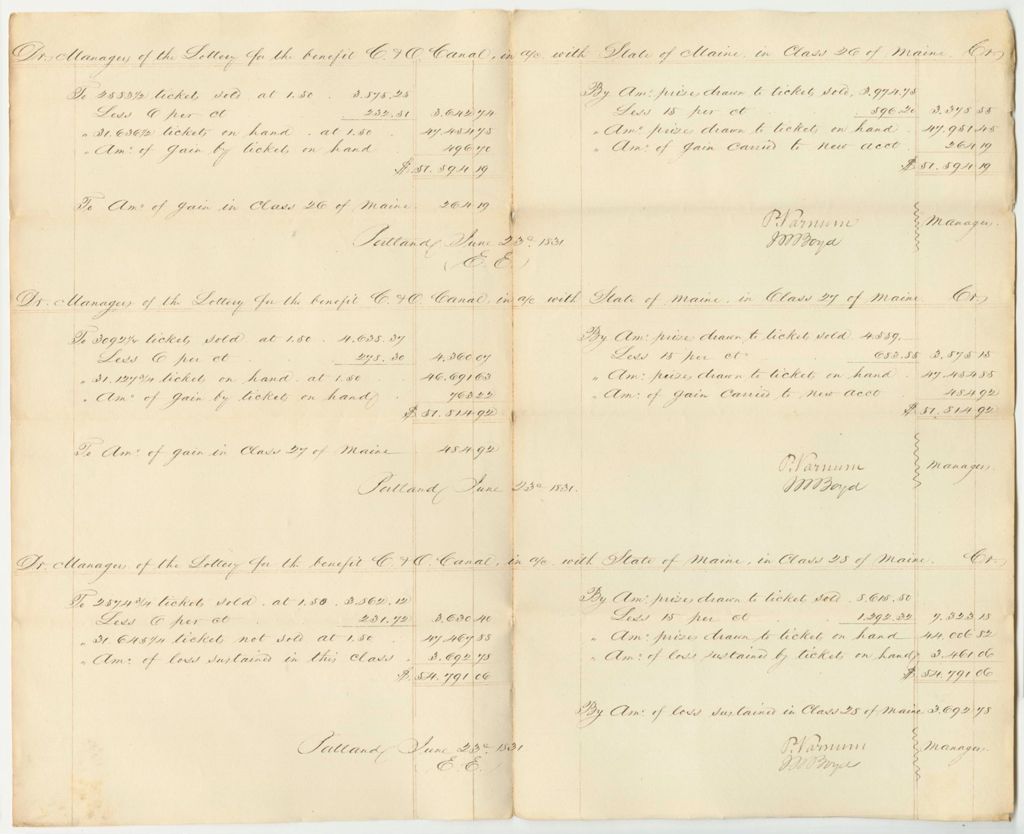 Dr. Managers of the Lottery for the benefit C. & O. Canal, in a/c with State of Maine, in Class 26 of Maine. Cr.
To 2583½ tickets sold at 1.50 . 3.875.25
Less 6 per ct 232.51 3.642 74
" 31.636½ tickets on hand . at 1.50 . 47.454 75
" Amt. of gain by tickets on hand 496 70
$ 51.594 19
To Amt. of gain in Class 26 of Maine . 264 19
Portland June 23d. 1831
(E. E.)
By Amt. prizes drawn to tickets sold, 3.974.75
Less 15 per ct 596.20 3.378 55
" Amt. prizes drawn to tickets on hand . 47.951.45
" Amt. of gain carried to new acct . 264 19
$ 51.594 19
P. Varnum
J M Boyd
Managers
Dr. Managers of the Lottery for the benefit C. & O. Canal, in a/c with State of Maine, in Class 27 of Maine. Cr.
To 3092¼ tickets sold at 1.50 . 4.638.37
Less 6 per ct . 278.30 4.360 07
" 31.127¾ tickets on hand . at 1.50 . 46.691 63
" Amt. of gain by tickets on hand 763 22
$ 51.814 92
To Amt. of gain in Class 27 of Maine 484 92
Portland June 23d 1831.
By Amt. prizes drawn to tickets sold 4.559.
Less 15 per ct . 683.85 3.875 15
" Amt. prizes drawn to tickets on hand . 47.454 85
" Amt. of gain carried to new acct . 484 92
$ 51.814 92
P. Varnum
J M Boyd
Managers.
Dr. Managers of the Lottery for the benefit C. & O. Canal, in a/c with State of Maine, in Class 28 of Maine. Cr.
To 2574¾ tickets sold . at 1.50 . 3.862.12
Less 6 per ct 231.72 3.630 40
" 31 645¼ tickets not sold at 1.50 . 47.467 88
" Amt. of loss sustained in this class . 3.692 78
$ 54.791 06
Portland June 23d. 1831
E. E.
By Amt. prizes drawn to tickets sold . 8.615.50
Less 15 per ct 1.292.32 7.323 18
" Amt. prizes drawn to tickets on hand 44.006 82
" Amt. of loss sustained by tickets on hand 3.461.06
$ 54.791 06
By Amt. of loss sustained in Class 28 of Maine 3.692 78
P. Varnum
J M Boyd
Managers.